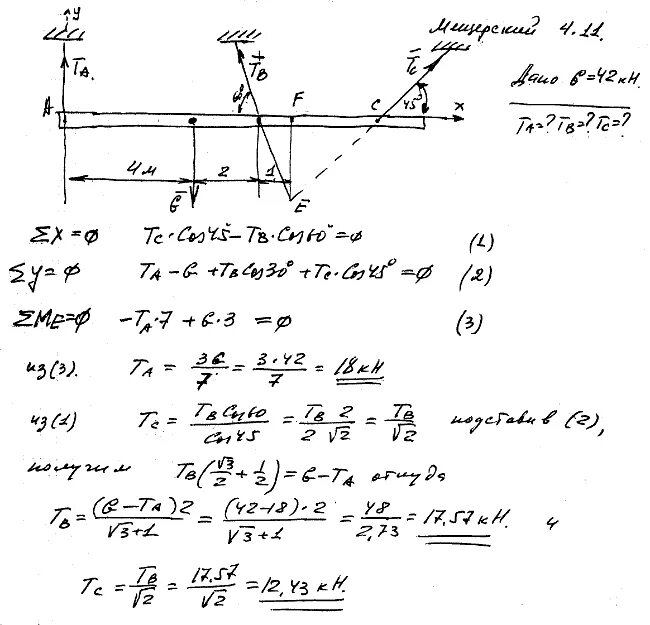 Мещерский 4.11.
y
T̄A
T̄B
T̄C
Дано G=42кН.
TA=? TB=? TC=?
A
60°
F
C
45°
x
4м
2
1
Ḡ
E
ΣX=0 TC·Cos45°−TB·Cos60°=0 (1)
ΣY=0 TA−G+TBCos30°+TC·Cos45°=0 (2)
ΣME=0 −TA·7+G·3=0 (3)
из(3). TA = 3G/7 = 3·42/7 = 18кН
из(1) TC = TB Cos60/Cos45 = TB 2/2√2 = TB/√2 подставив (2),
получим TB(√3/2+1/2)=G−TA откуда
TB=(G−TA)2/√3+1 = (42−18)·2/√3+1 = 48/2,73 = 17,57 кН. и
TC = TB/√2 = 17.57/√2 = 12,43 кН.